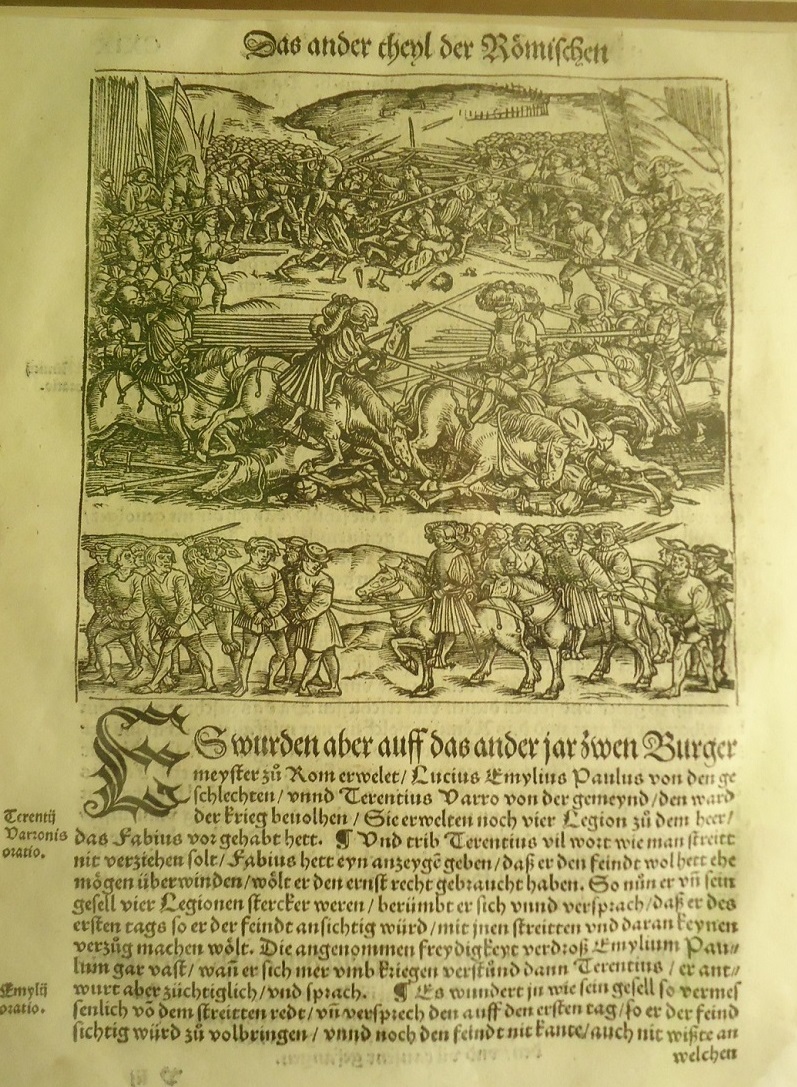 Das ander theyl der Römischen
ES wurden aber auff das ander jar zwen Burger
meyster zů Rom erwelet / Lucius Emylius Paulus von den ge
schlechten / vnnd Terentius Varro von der gemeynd / den ward
der krieg beuolhen / Sie erwelten noch vier Legion zů dem heer /
Terentij
Varronis
oratio.
das Fabius vor gehabt hett. ¶ Vnd trib Terentius vil wort wie man streitt
nit verziehen solt / Fabius hett eyn anzeygē geben / daß er den feindt wol hett ehe
mögen überwinden / wölt er den ernst recht gebraucht haben. So nůn er vñ sein
gesell vier Legionen stercker weren / berümbt er sich vnnd versprach / daß er des
ersten tags so er der feindt ansichtig würd / mit jnen streitten vnd daran keynen
verzůg machen wölt. Die angenommen freydigkeyt verdroß Emylium Pau⸗
lum gar vast / wañ er sich mer vmb kriegen verstůnd dann Terentius / er ant⸗
Emylij
oratio.
wurt aber züchtiglich / vnd sprach. ¶ Es wundert jn wie sein gesell so vermes
senlich vō dem streitten redt / vñ versprech den auff den ersten tag / so er der feind
sichtig würd zů volbringen / vnnd noch den feindt nit kante / auch nit wißte an
welchen